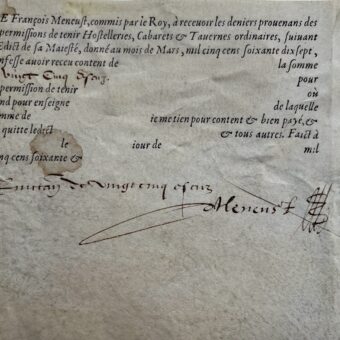 E François Meneust, commis par le Roy, à receuoir les deniers prouenans des
permissions de tenir Hostelleries, Cabarets & Tauernes ordinaires, suiuant
Edict de sa Maiesté, donné au mois de Mars, mil cinq cens soixante dixsept,
nfesse auoir receu content de la somme
vingt cinq escuz pour
permission de tenir où
nd pour enseigne de laquelle
mme de ie me tien pour content & bien payé, &
quitte ledict & tous autres. Faict à
le iour de mil
inq cens soixante &
Quittan de vingt cinq escuz
Meneust